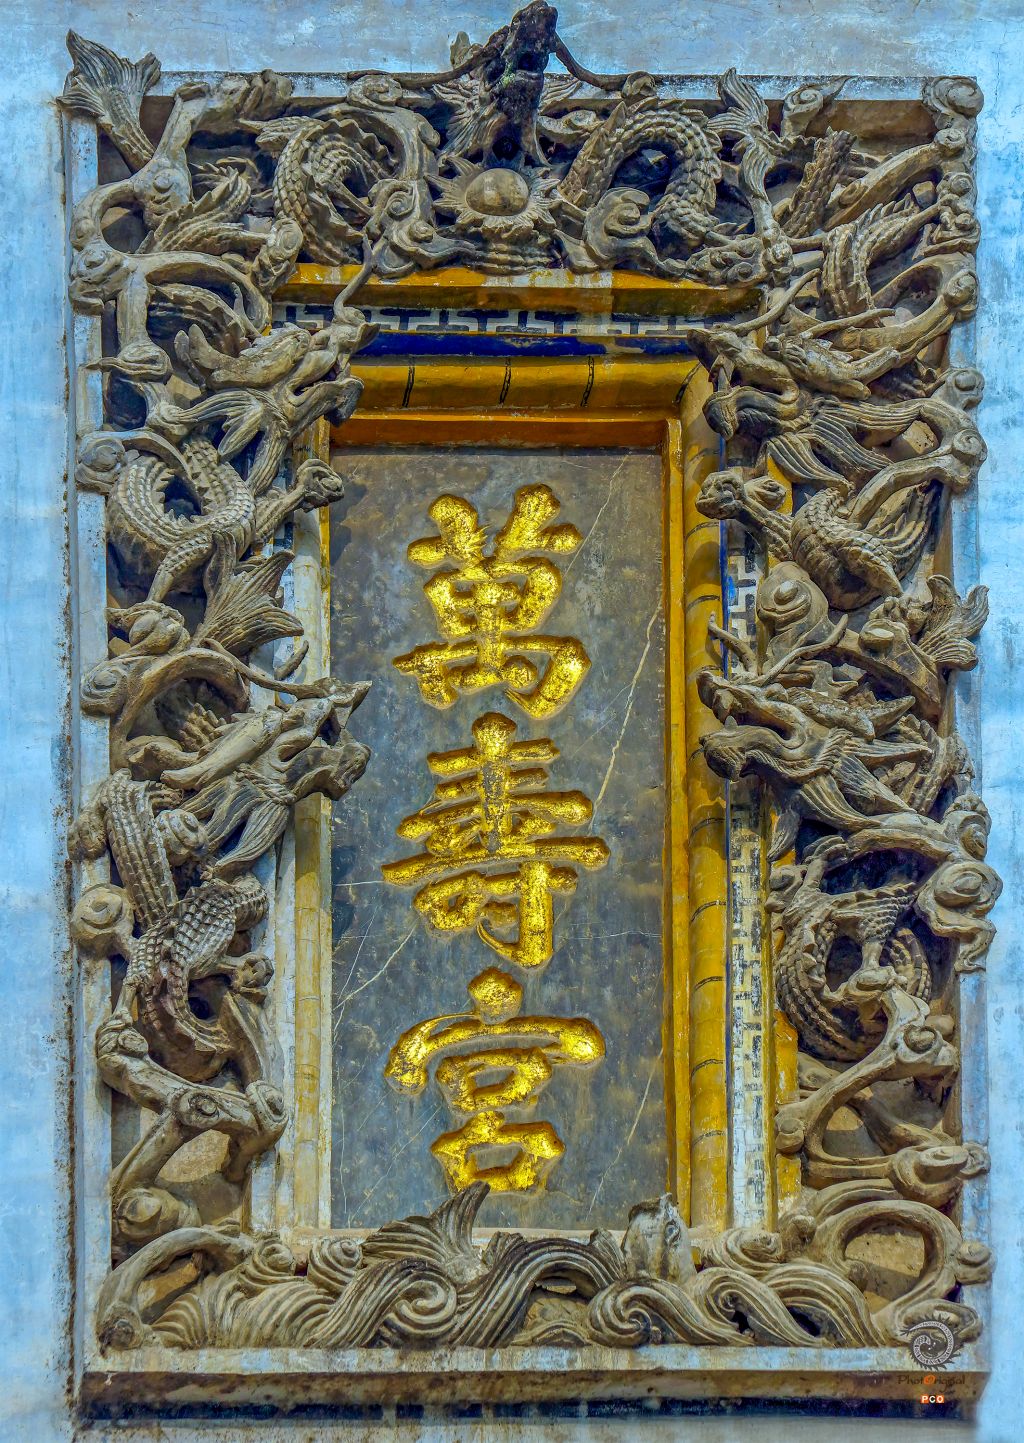 萬壽宮
PhotOriginal
PCO